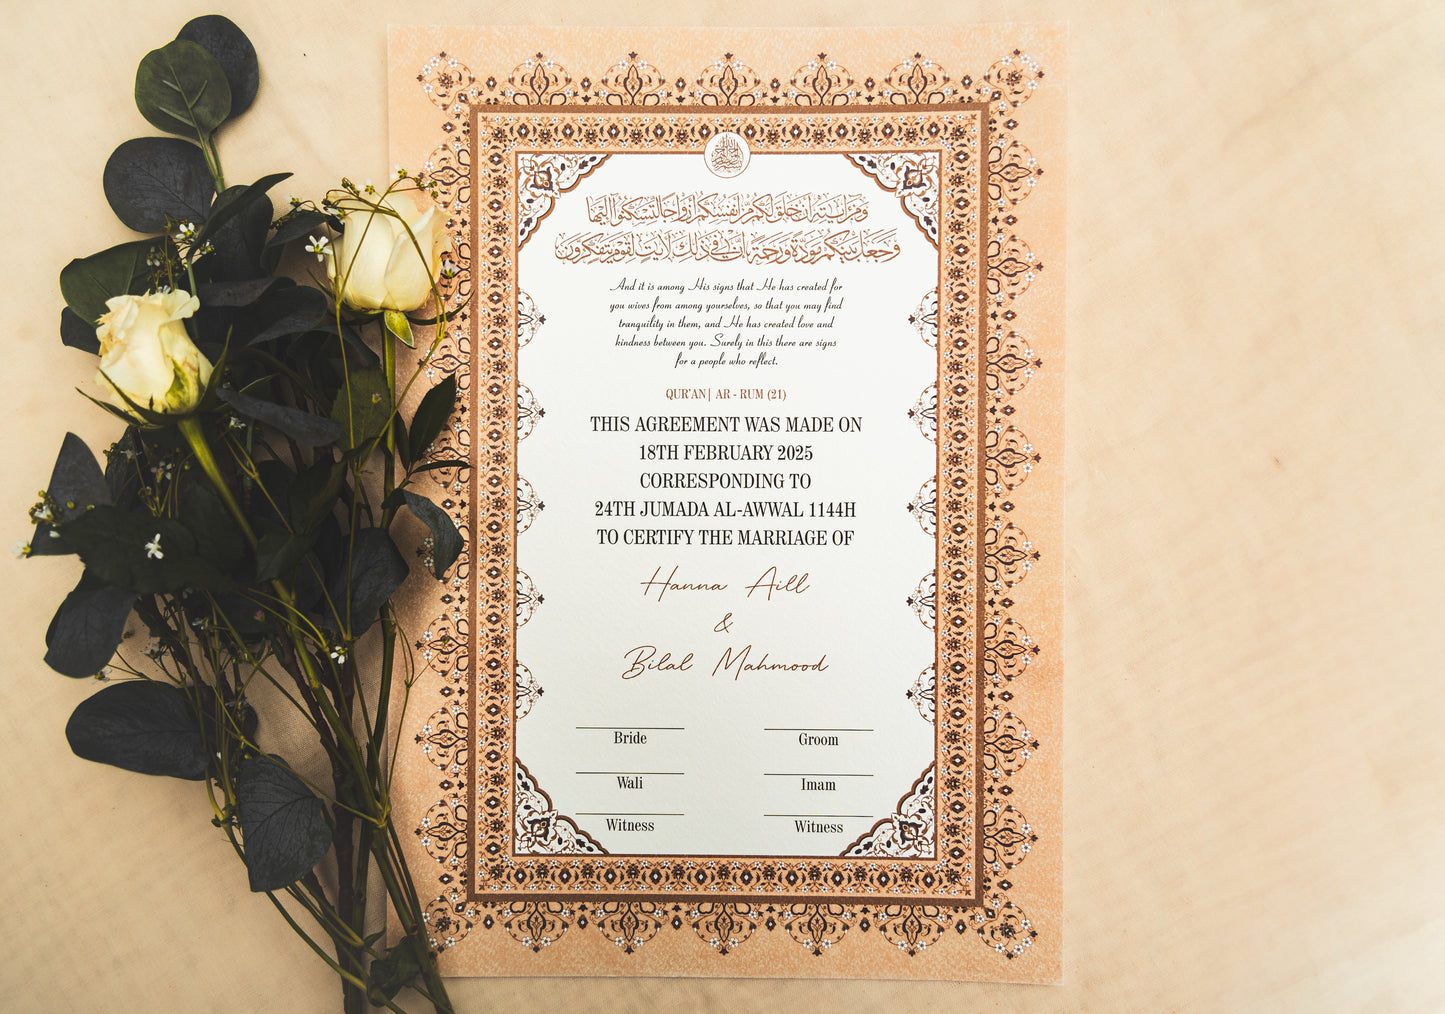 وَمِنْ آيَاتِهِ أَنْ خَلَقَ لَكُم مِّنْ أَنفُسِكُمْ أَزْوَاجًا لِّتَسْكُنُوا إِلَيْهَا
وَجَعَلَ بَيْنَكُم مَّوَدَّةً وَرَحْمَةً إِنَّ فِي ذَٰلِكَ لَآيَاتٍ لِّقَوْمٍ يَتَفَكَّرُونَ
And it is among His signs that He has created for
you wives from among yourselves, so that you may find
tranquility in them, and He has created love and
kindness between you. Surely in this there are signs
for a people who reflect.
QUR'AN| AR - RUM (21)
THIS AGREEMENT WAS MADE ON
18TH FEBRUARY 2025
CORRESPONDING TO
24TH JUMADA AL-AWWAL 1144H
TO CERTIFY THE MARRIAGE OF
Hanna Aill
&
Bilal Mahmood
Bride Groom
Wali Imam
Witness Witness